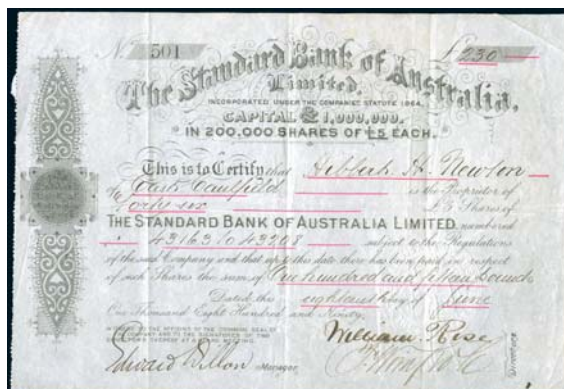 No. 501 £ 230
The Standard Bank of Australia,
Limited.
INCORPORATED UNDER THE COMPANIES STATUTE 1864.
CAPITAL £1,000,000.
IN 200,000 SHARES OF £5 EACH.
This is to Certify that Hibbert H. Newton
of East Caulfield is the Proprietor of
Forty six £5 Shares of
THE STANDARD BANK OF AUSTRALIA LIMITED, numbered
43163 to 43208 subject to the Regulations
of the said Company and that up to this date there has been paid in respect
of such Shares the sum of One hundred and fifteen pounds
Dated this eighteenth day of June
One Thousand Eight Hundred and Ninety.
William Rose
Edward Dillon Manager.